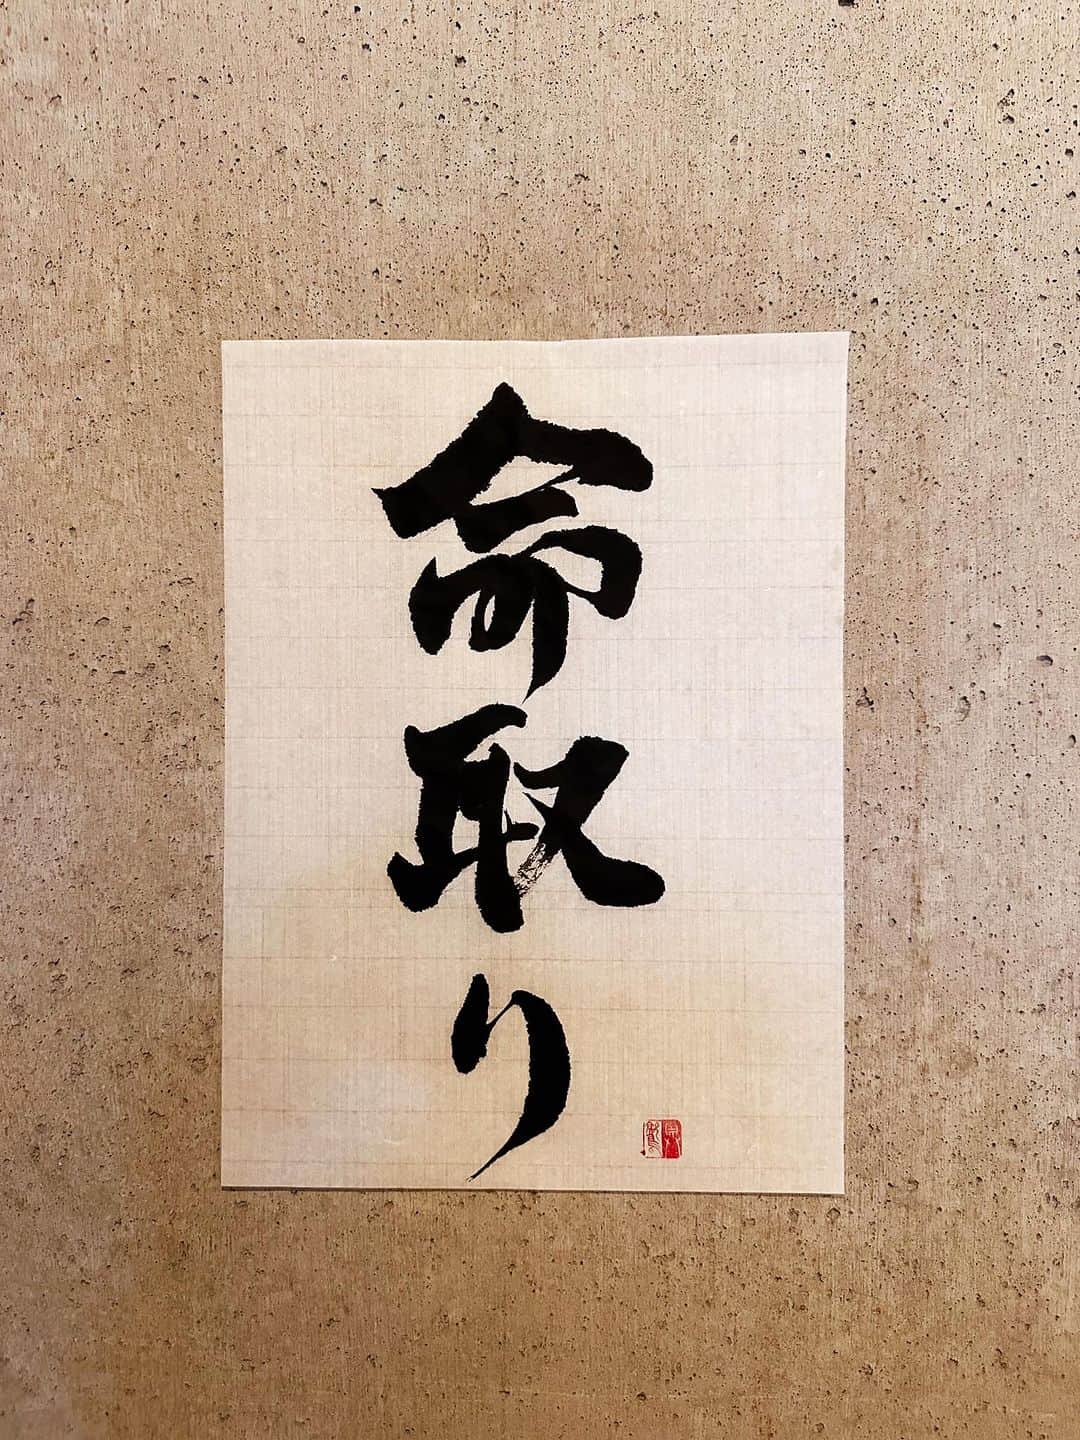 命取り